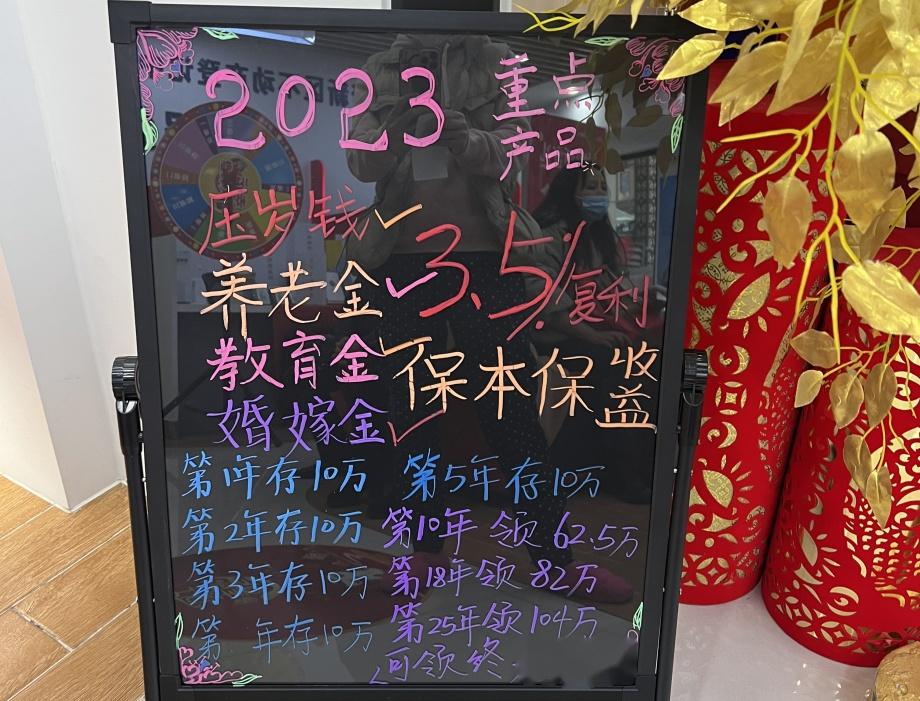 2023 重点
产品
压岁钱✓
养老金✓
教育金✓
婚嫁金✓
3.5%复利
保本保收益
第1年存10万
第2年存10万
第3年存10万
第 年存10万
第5年存10万
第10年领62.5万
第18年领82万
第25年领104万
可领终